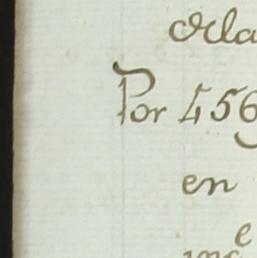 dela
Por 456
en